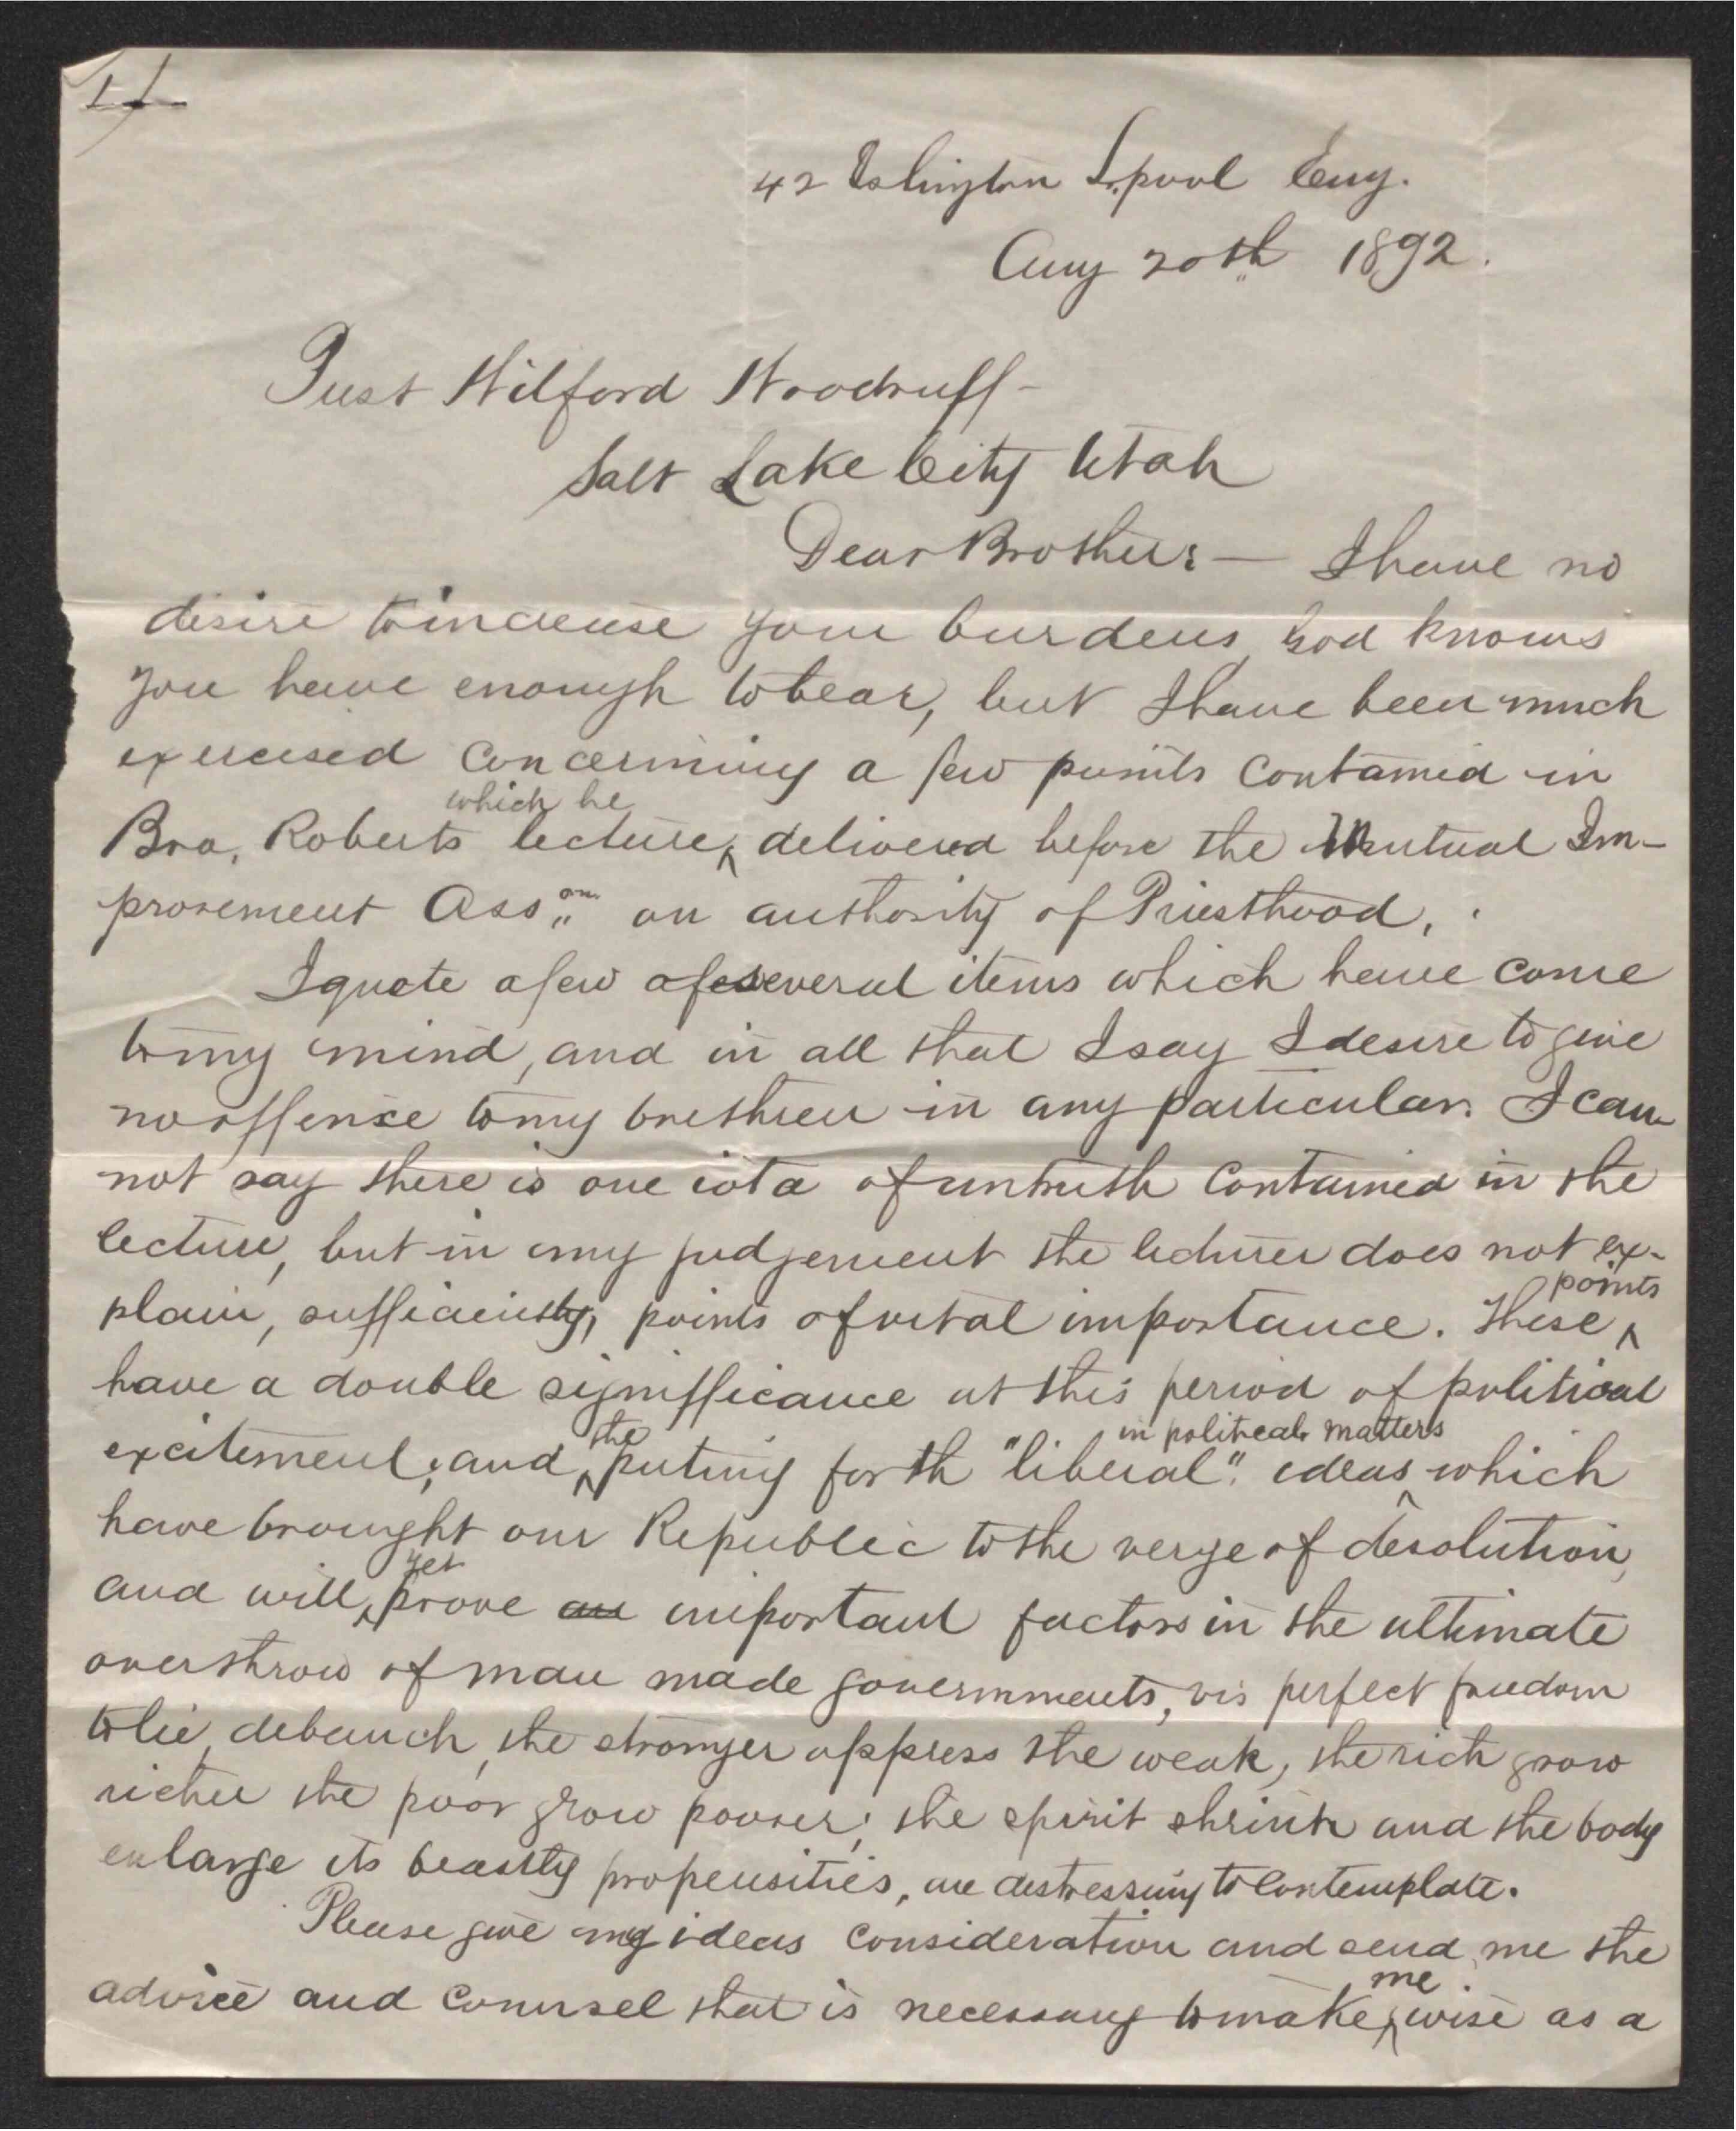 1/
42 Islington L.pool Eng.
Aug 20th 1892.
Prest Wilford Woodruff-
Salt Lake City Utah
Dear Brother:— I have no
desire to increase your burdens, God knows
you have enough to bear, but I have been much
exercised concerning a few points contained in
which he
Bro, Roberts lecture ^ delivered before the Mutual Im-
provement Asson. on authority of Priesthood,.
I quote a few of several items which have come
to my mind, and in all that I say I desire to give
no offense to my brethren in any particular. I can
not say there is one iota of untruth contained in the
lecture, but in my judgement the lecturer does not ex-
points
plain, sufficiently, points of vital importance. These ^
have a double signifficance at this period of political
the in political matters
excitement, and ^ puting forth "liberal" ideas ^ which
have brought our Republic to the verge of desolution,
yet
and will ^ prove an important factors in the ultimate
overthrow of man made governments, vis perfect freedom
to lie, debauch, the stronger oppress the weak, the rich grow
richer the poor grow poorer; the spirit shrink and the body
enlarge its beastly propensities, are distressing to contemplate.
Please give my ideas consideration and send me the
me
advice and counsel that is necessary to make ^ wise as a